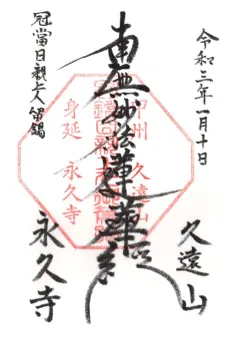 令和三年一月十日
南無妙法蓮華経
冠當日親上人留錫
久遠山
永久寺
甲州 久遠山
身延 永久寺